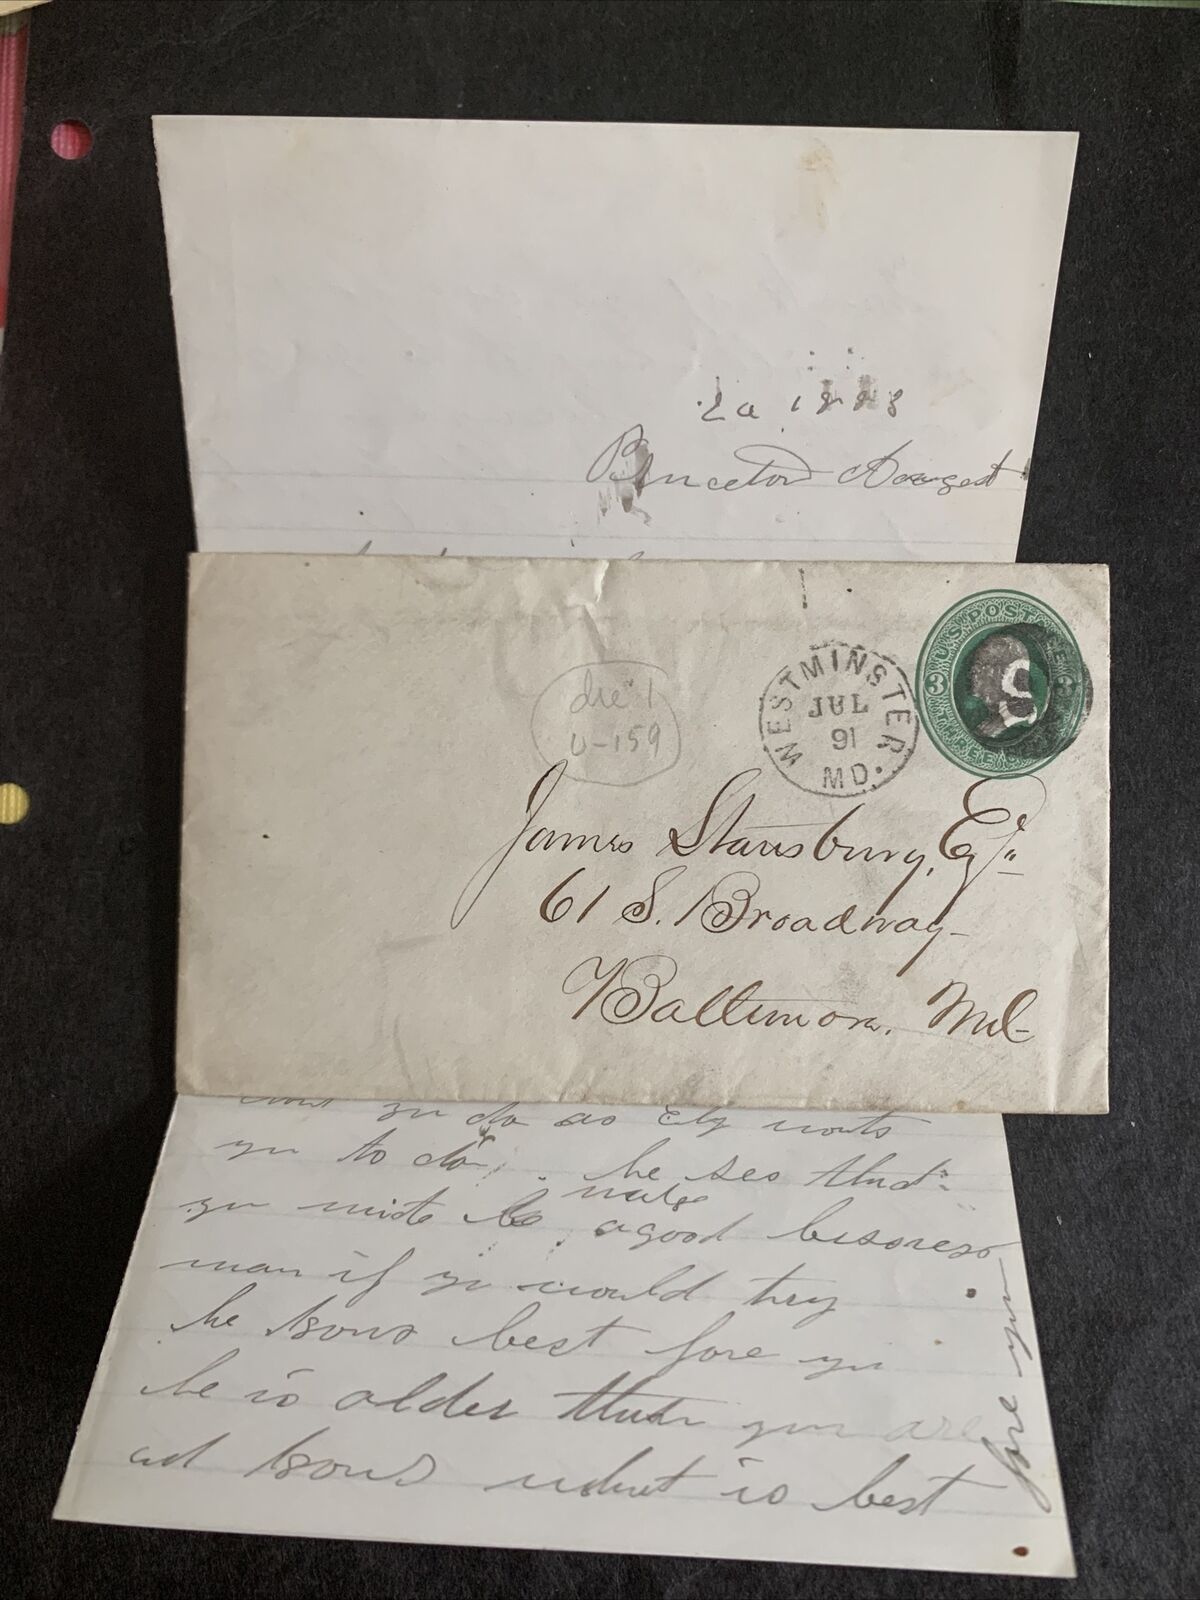 Princeton Aougest
die 1
U-159
U.S. POSTAGE
3 3
WESTMINSTER
JUL
91
MD.
James Stansbury, Esq.
61 S. Broadway
Baltimore, Md
yu do as Ely wonts
yu to do he ses that
yu mite make a good bisoness
man if yu would try
he knows best fore yu
he is older than yu are
ad knows what is best
fore yu